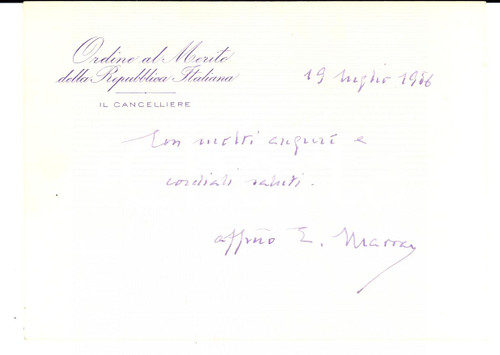 Ordine al Merito
della Repubblica Italiana
IL CANCELLIERE
19 luglio 1956
Con molti auguri e
cordiali saluti.
aff.mo E.